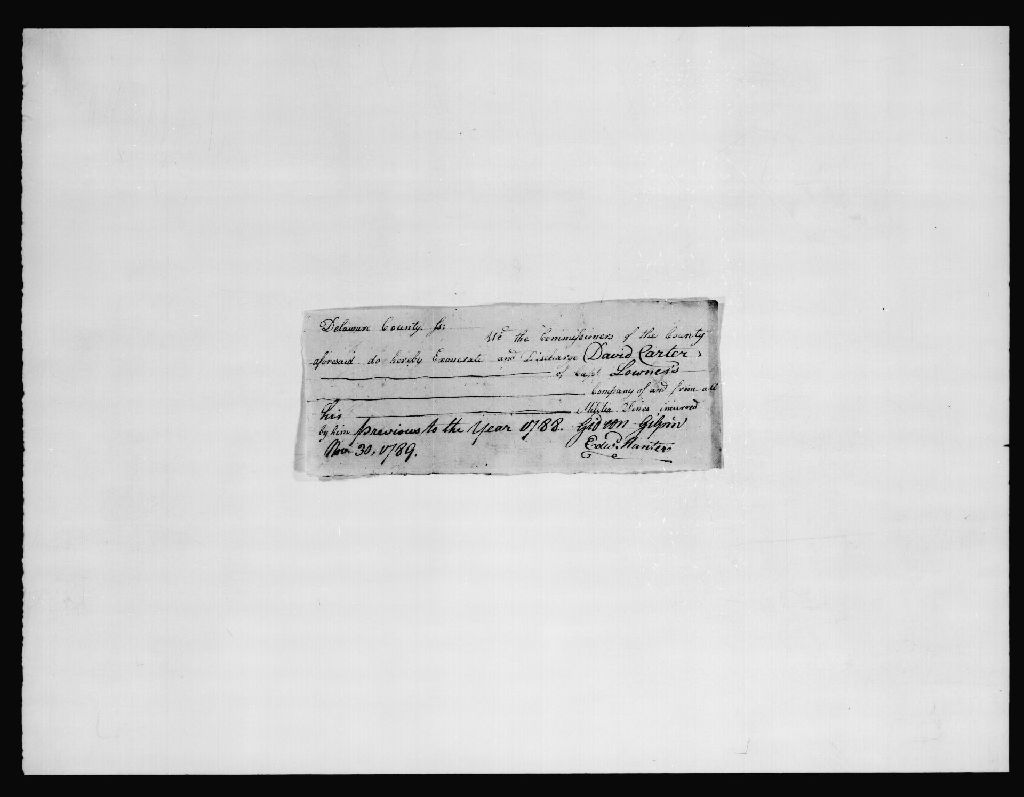 Delaware County ss:
We the Commissioners of the County
aforesaid do hereby Exonerate and Discharge David Carter
of Capt Lownes's
Company of and from all
his Militia Fines incurred
by him previous to the Year 1788. Gideon Gilpin
Nov. 30, 1789. Edwd. Hunter